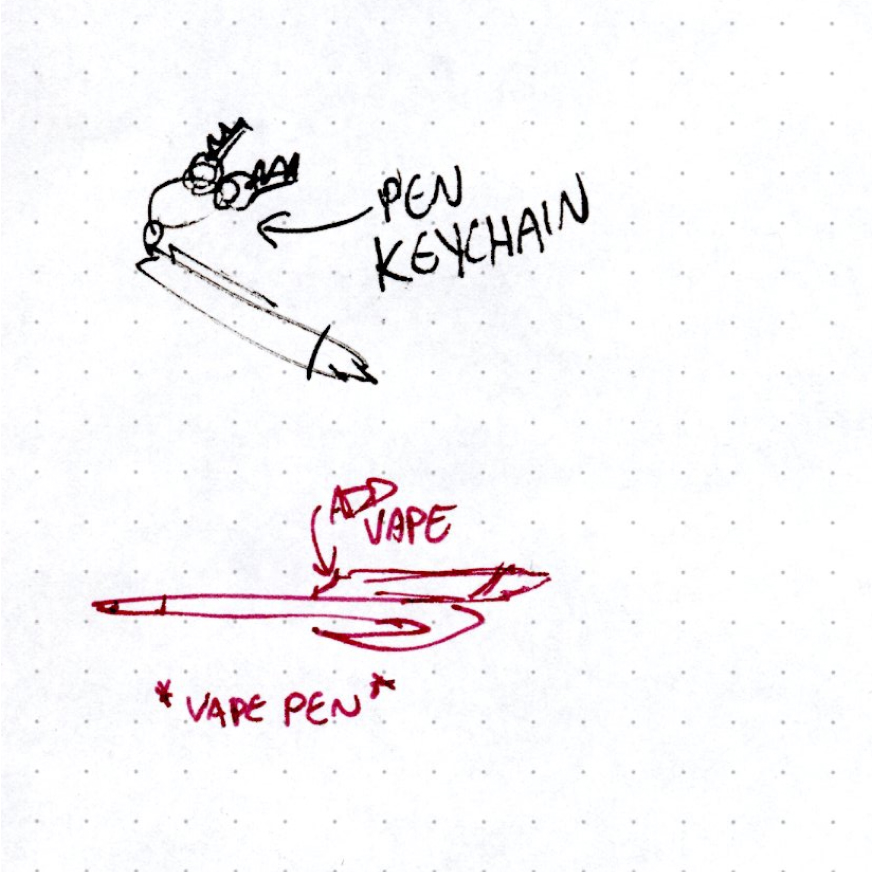 PEN
KEYCHAIN
ADD
VAPE
*VAPE PEN*